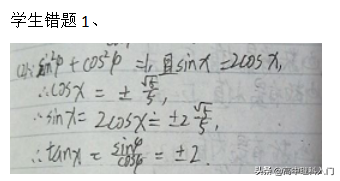 学生错题 1、
sin²φ + cos²φ = 1, 且 sinx = 2cosx,
∴cosx = ± √5/5,
∴sinx = 2cosx = ±2√5/5,
∴tanx = sinφ/cosφ = ±2.
头条 @高中理科入门